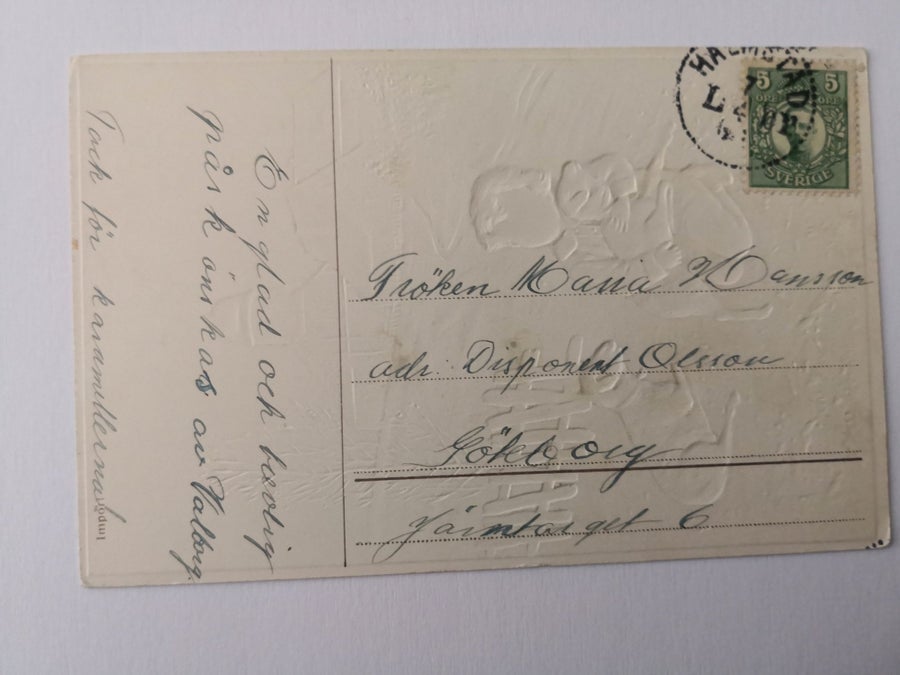 En glad och trevlig
påsk önskas av Valborg.
Tack för karamellerna
Import
HALMSTAD
5 5
ÖRE ÖRE
SVERIGE
Fröken Maria Hansson
adr. Disponent Olsson
Göteborg
Järntorget 6